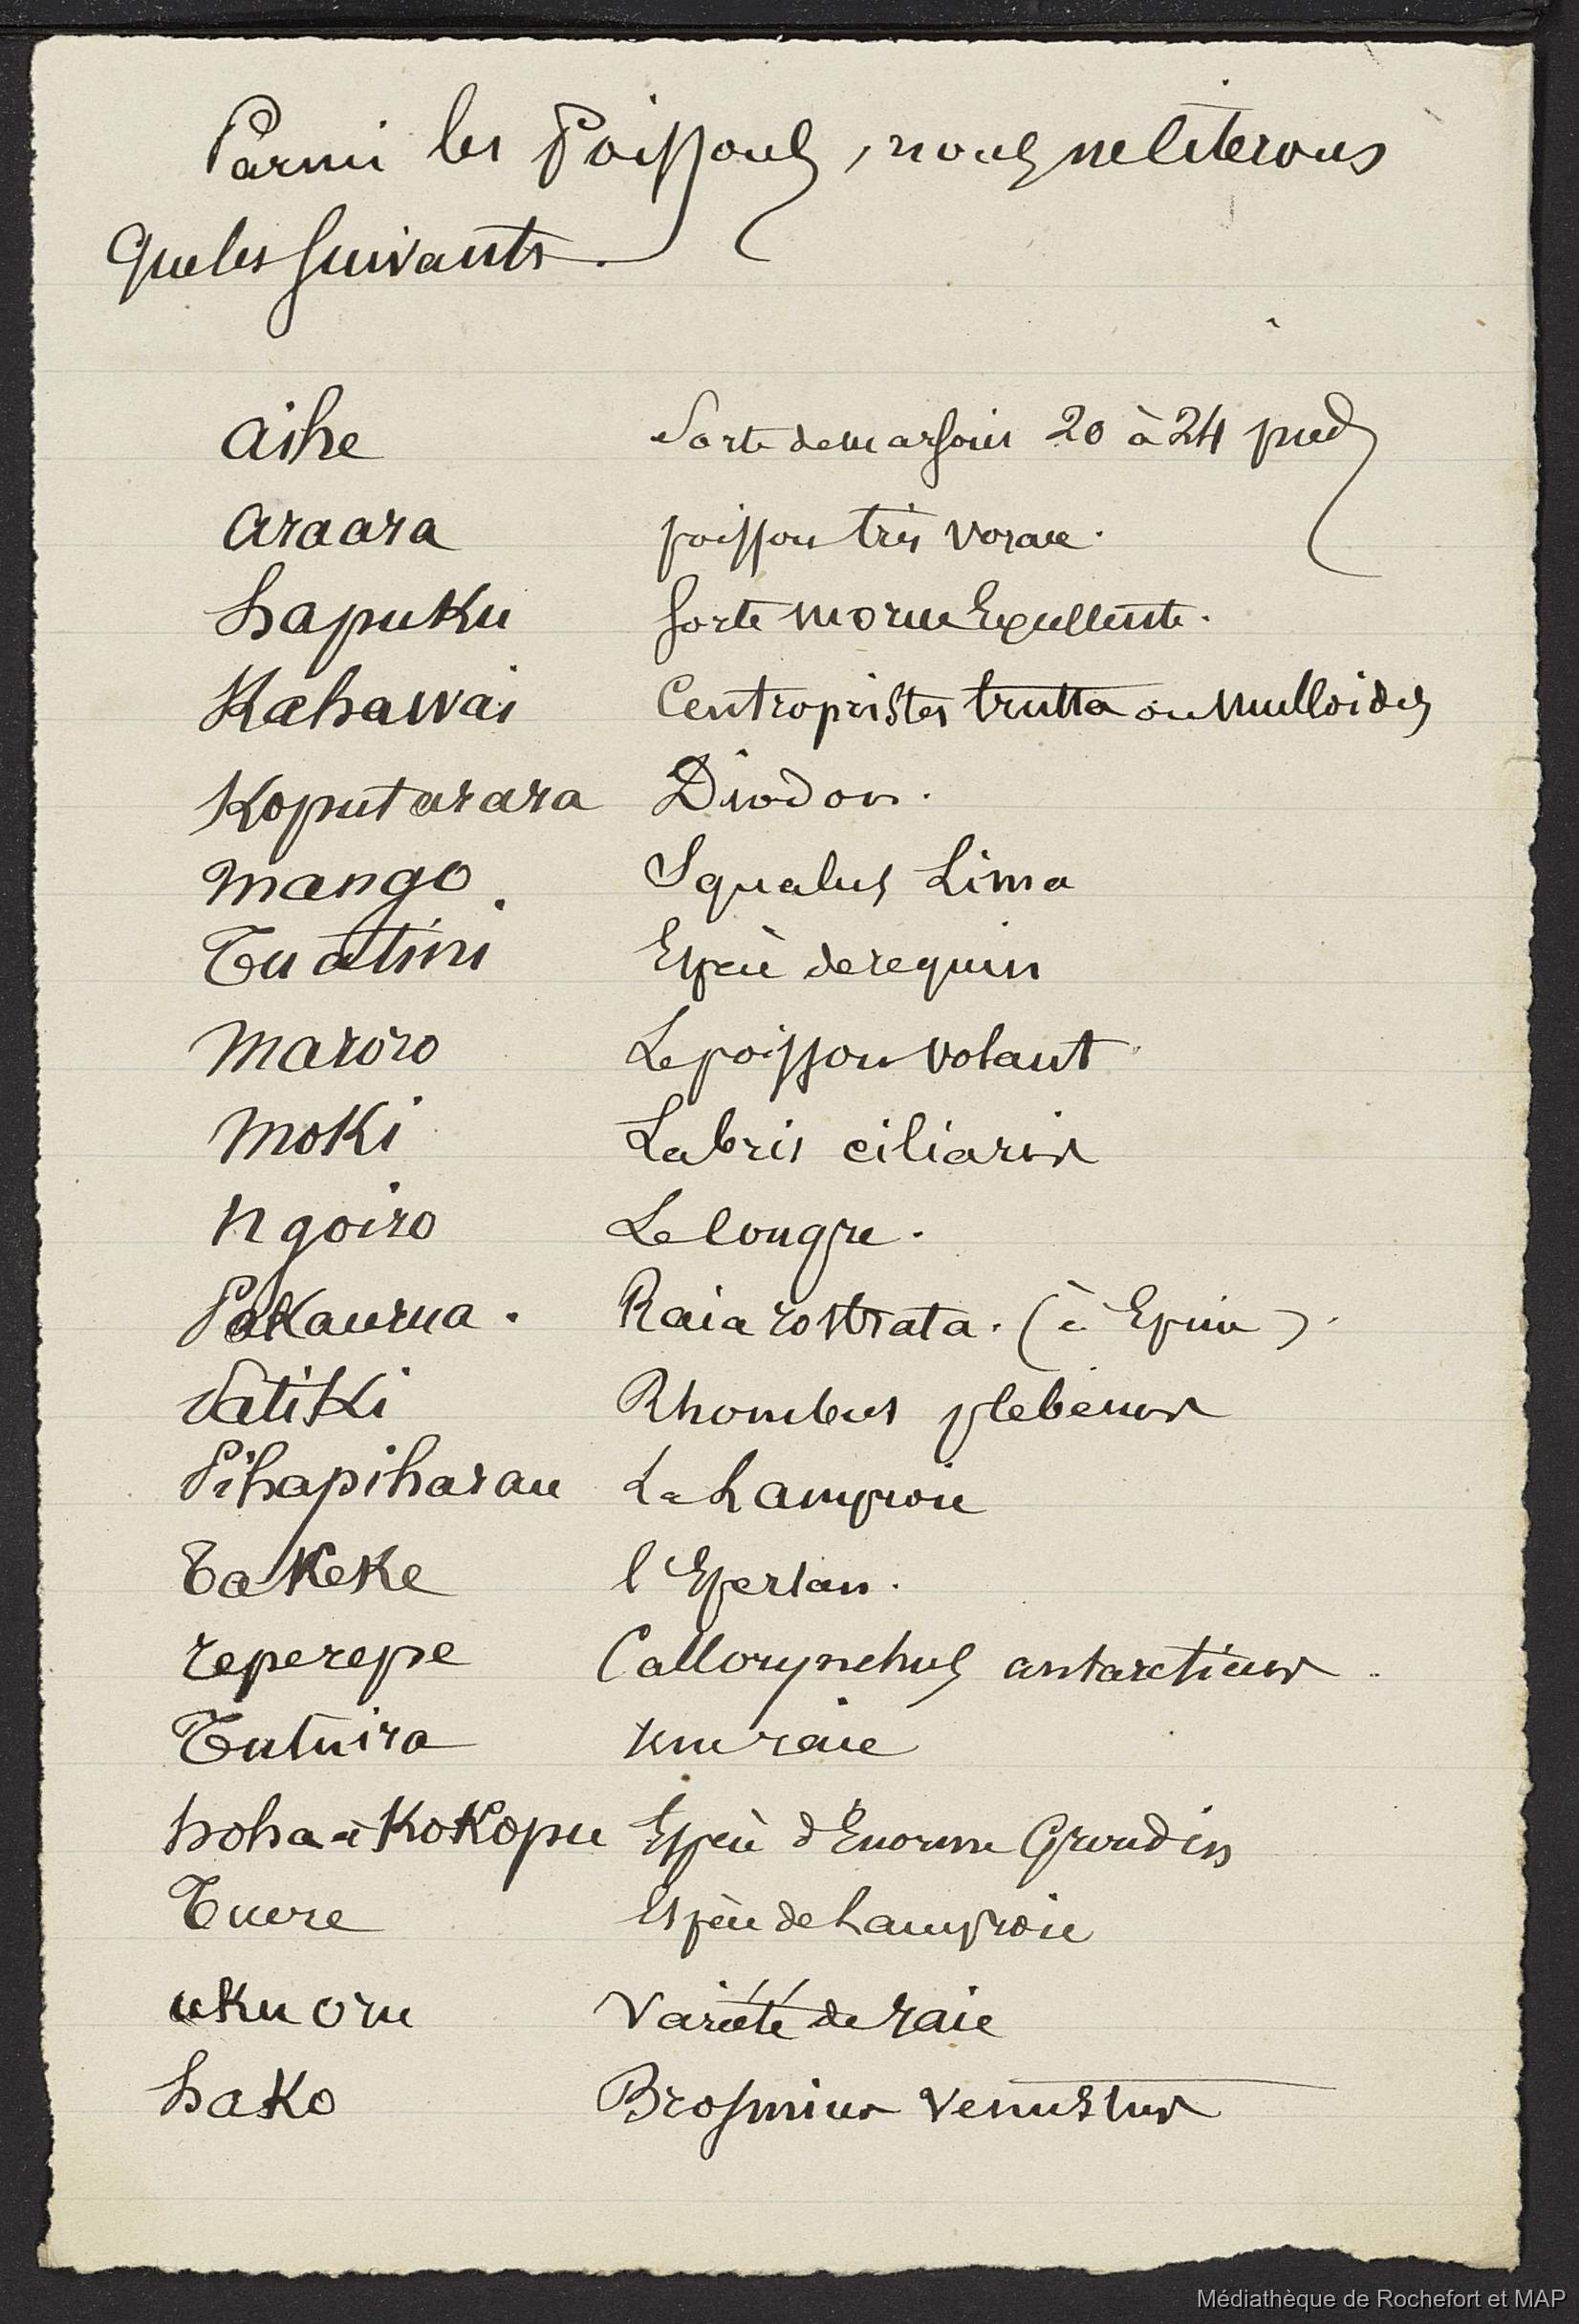 Parmi les Poissons, nous ne citerons
que les suivants.
aihe Sorte de marsouin 20 à 24 pieds
araara poisson très vorace.
hapuku sorte morue Excellente.
Kahawai Centropristes trutta ou mulloides
Koputarara Diodon.
mango Squalus Lima
Tuatini Espèce de requin
maroro Le poisson volant
moki Labris ciliaris
ngoiro Le Congre.
Pakaurua. Raia rostrata. (à Epine).
Patiki Rhombus plebeius
Pihapiharau La Lamproie
Takeke l'Eperlan.
reperepe Callorynchus antarcticus.
Tutuira une raie
hoha a Kokopu Espèce d'Enorme Grondin
Tuere Espèce de Lamproie
uku oru Variété de raie
hako Brosmius venustus
Médiathèque de Rochefort et MAP